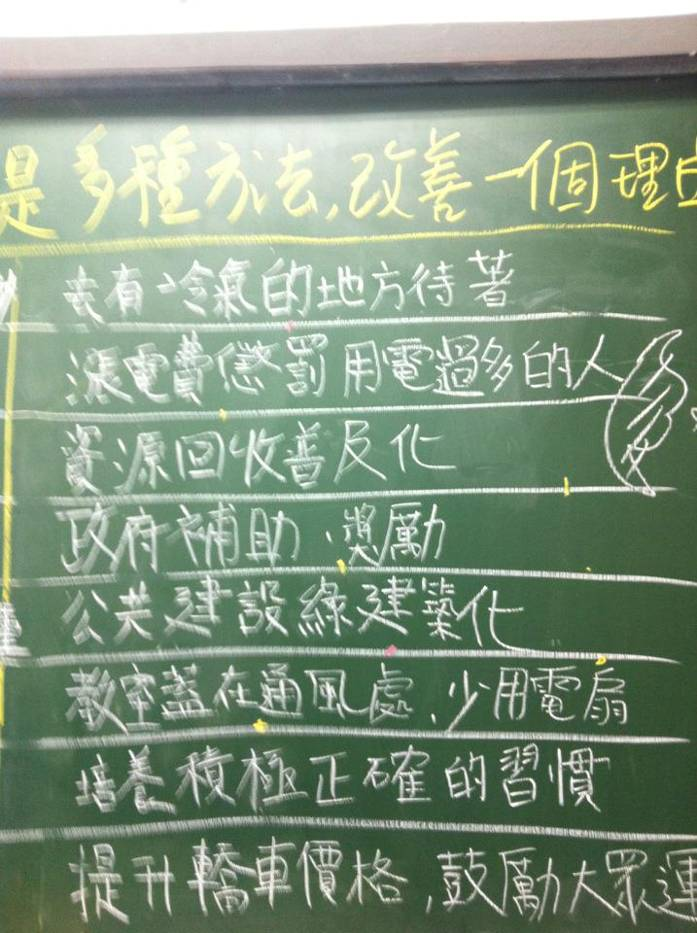 是多種方法,改善一個理由
去有冷氣的地方待著
漲電費懲罰用電過多的人
資源回收善及化
政府補助、獎勵
公共建設綠建築化
教室蓋在通風處、少用電扇
培養積極正確的習慣
提升轎車價格,鼓勵大眾運